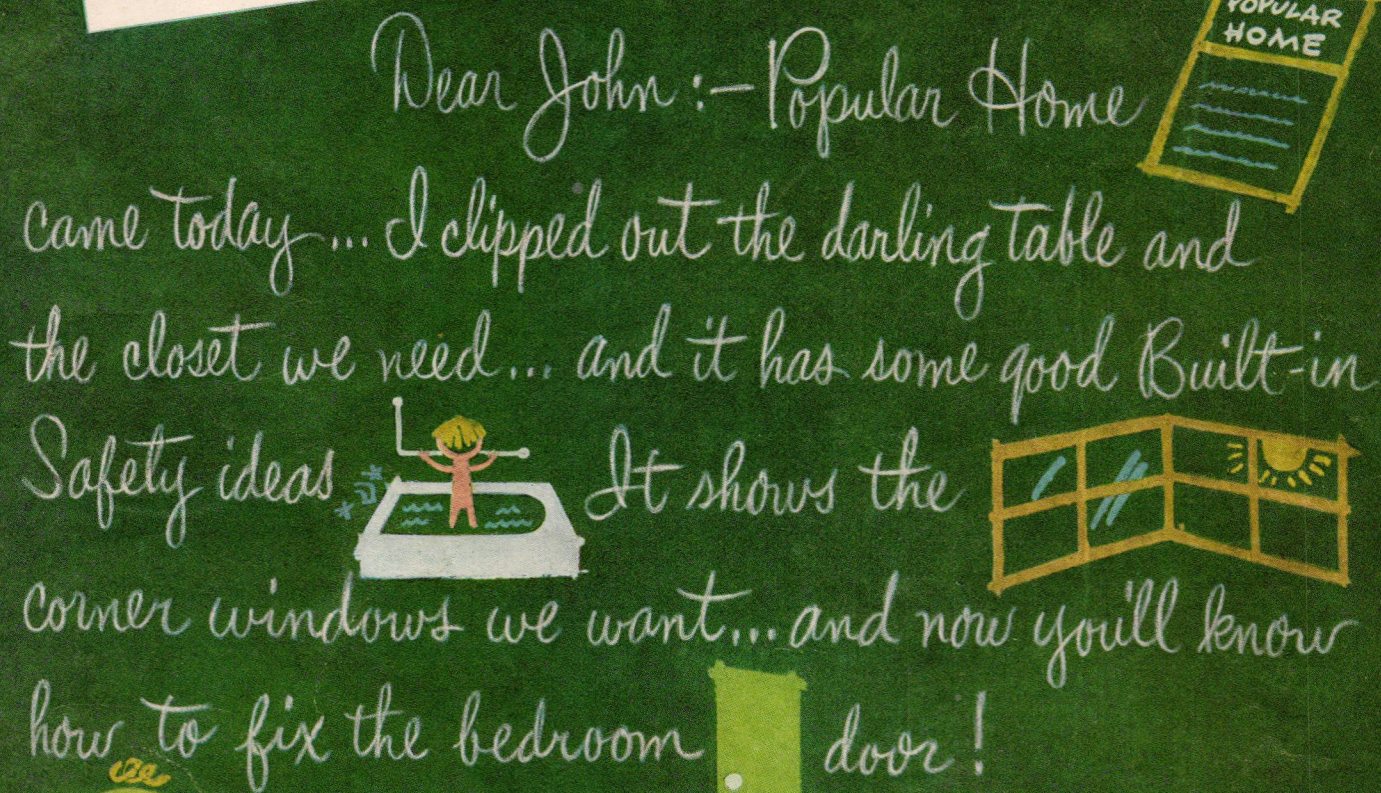 POPULAR
HOME
Dear John:- Popular Home
came today... I clipped out the darling table and
the closet we need... and it has some good Built-in
Safety ideas It shows the
corner windows we want... and now you'll know
how to fix the bedroom door!